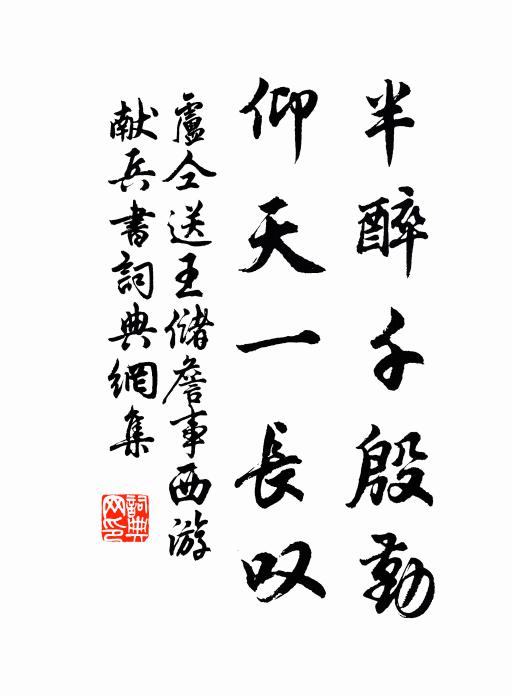 半醉千殷勤
仰天一長叹
盧仝送王儲詹事西游
献兵書詞典網集
詞典网印